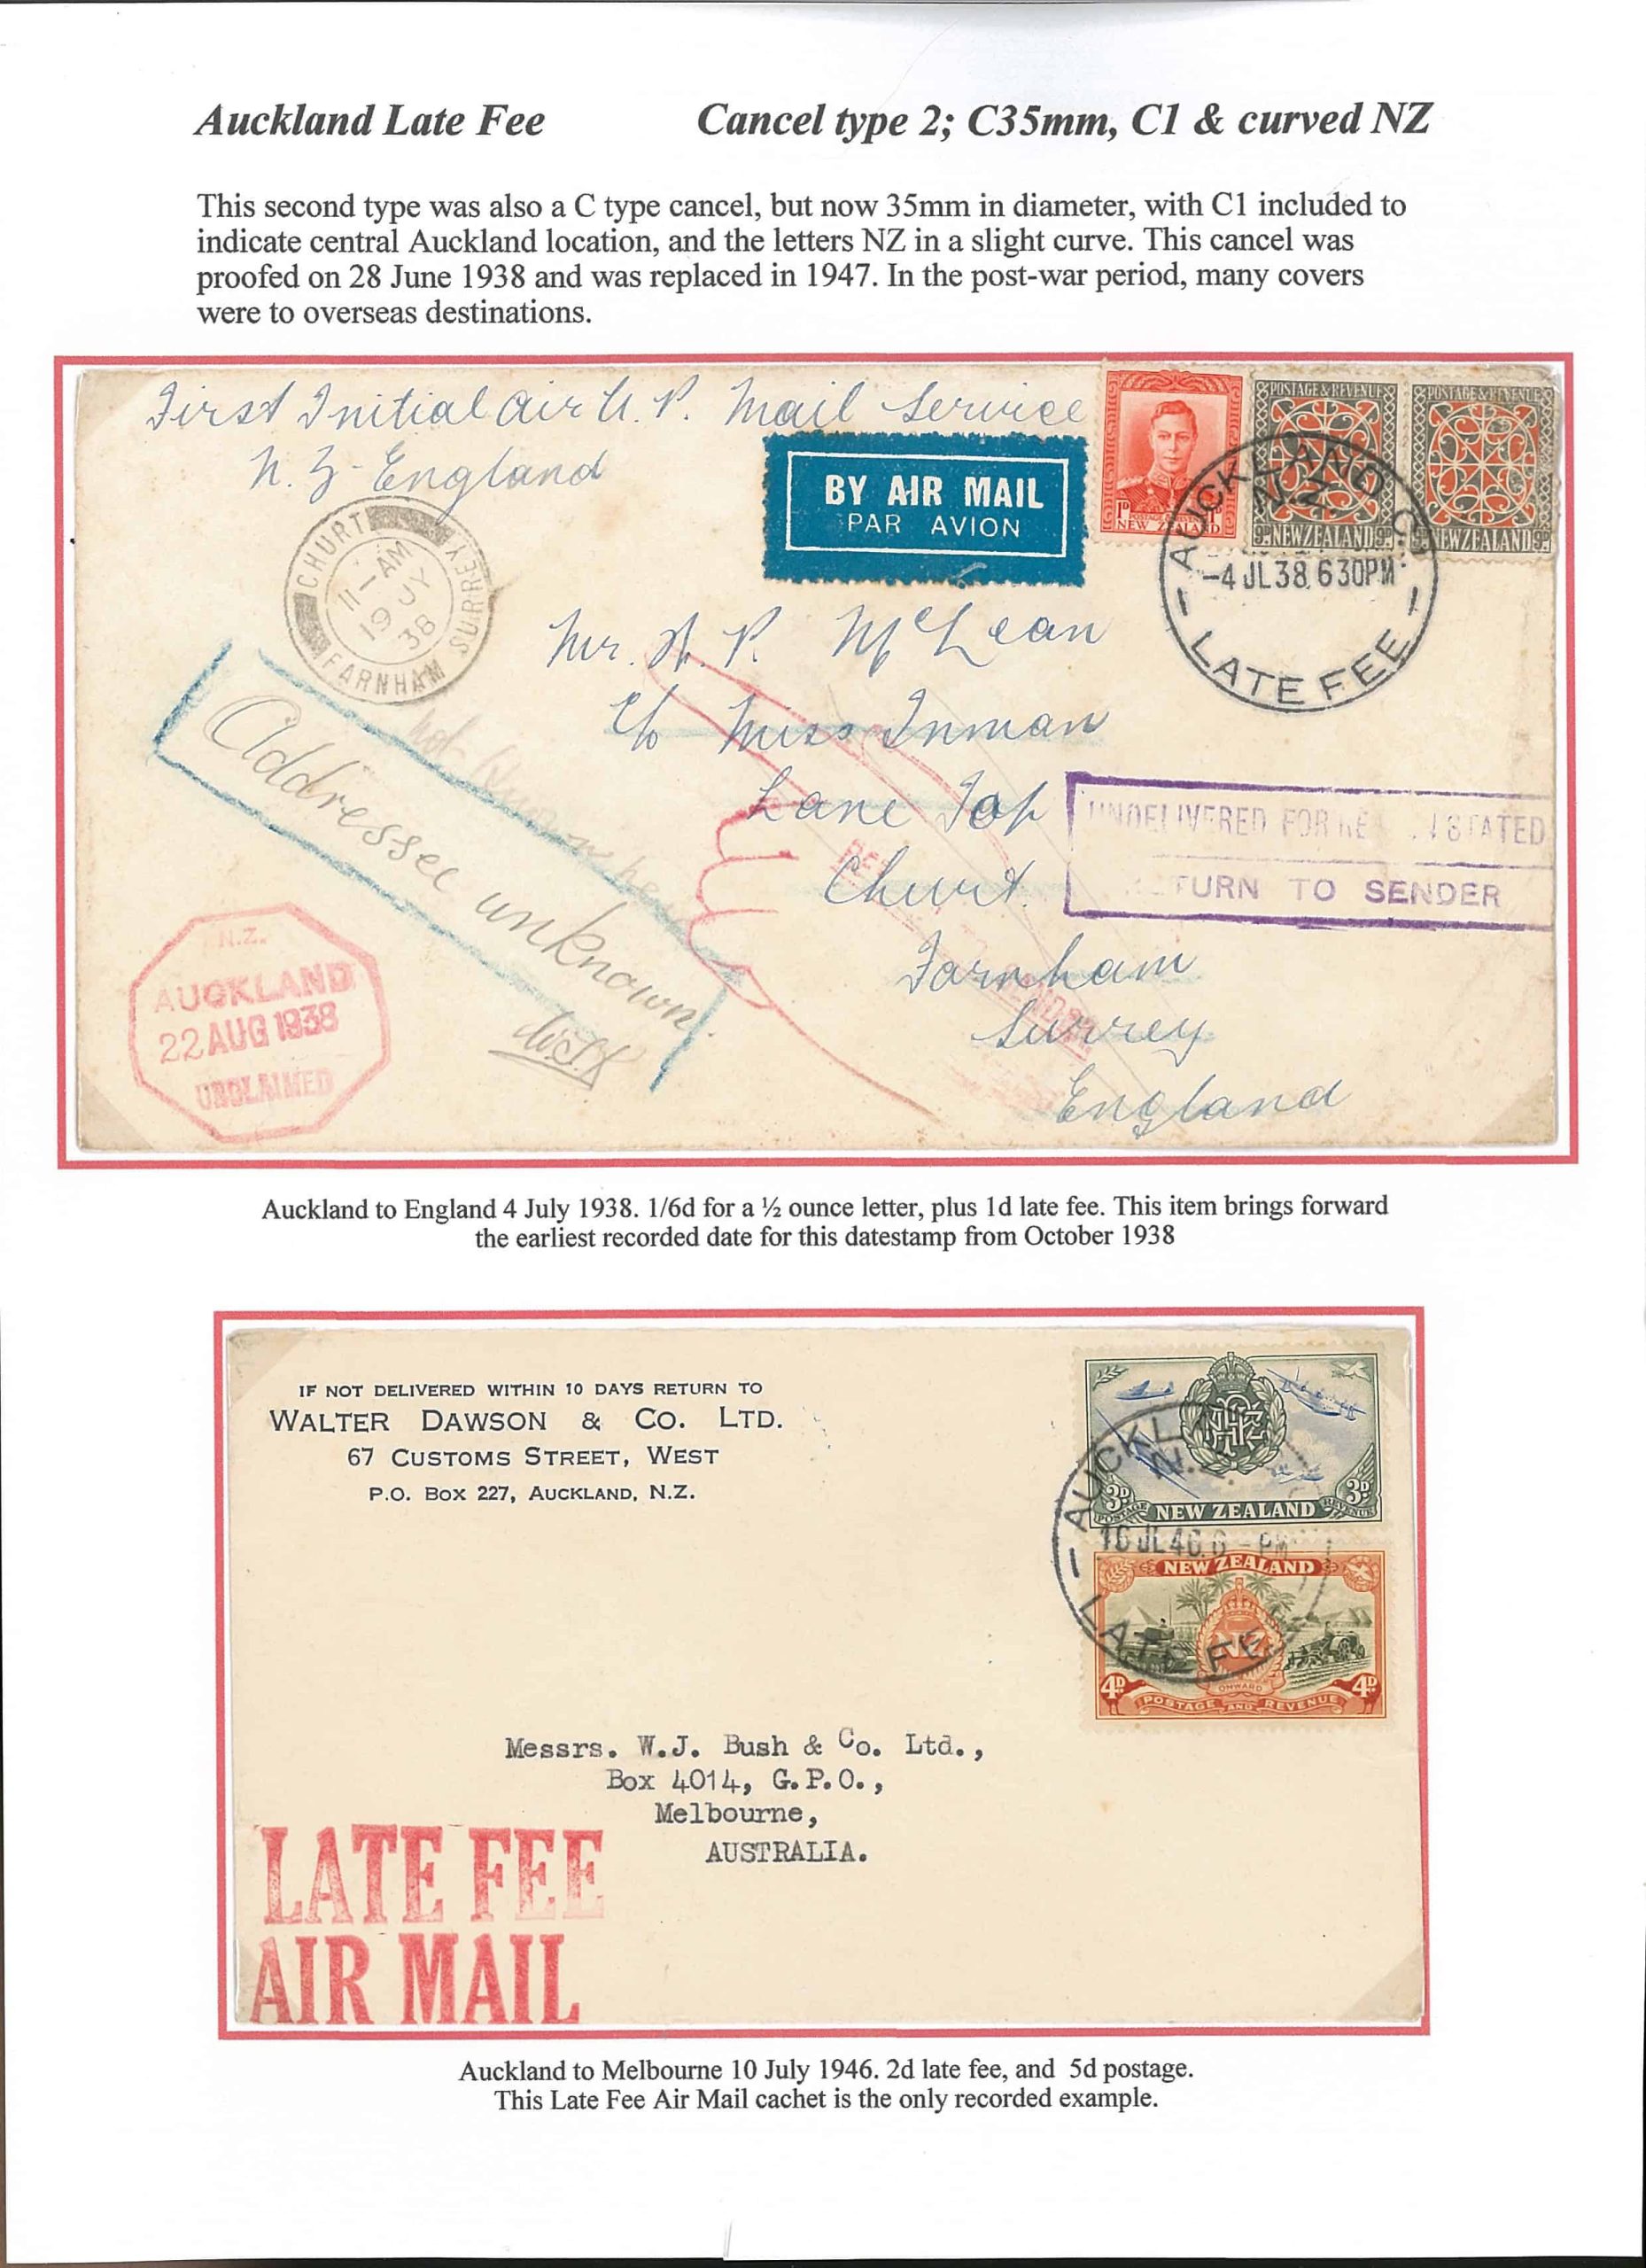 Auckland Late Fee Cancel type 2; C35mm, C1 & curved NZ
This second type was also a C type cancel, but now 35mm in diameter, with C1 included to
indicate central Auckland location, and the letters NZ in a slight curve. This cancel was
proofed on 28 June 1938 and was replaced in 1947. In the post-war period, many covers
were to overseas destinations.
First Initial Air U.P. Mail Service
N.Z-England
BY AIR MAIL
PAR AVION
1D
NEW ZEALAND
POSTAGE & REVENUE
9D NEW ZEALAND 9D
POSTAGE & REVENUE
9D NEW ZEALAND 9D
AUCKLAND C1
N.Z.
-4 JL38.630PM
LATE FEE
CHURT
SURREY
11-AM
19 JY
38
FARNHAM
Mr. P. McLean
c/o Miss Inman
Lane Top
Churt.
Farnham
Surrey
England
not known here
Addressee unknown.
UNDELIVERED FOR STATED
RETURN TO SENDER
N.Z.
AUCKLAND
22 AUG 1938
UNCLAIMED
Auckland to England 4 July 1938. 1/6d for a ½ ounce letter, plus 1d late fee. This item brings forward
the earliest recorded date for this datestamp from October 1938
IF NOT DELIVERED WITHIN 10 DAYS RETURN TO
WALTER DAWSON & CO. LTD.
67 CUSTOMS STREET, WEST
P.O. BOX 227, AUCKLAND, N.Z.
3D 3D
POSTAGE NEW ZEALAND REVENUE
AUCKLA
N.Z.
JL46.6 - PM
LATE FEE
NEW ZEALAND
NZ
ONWARD
4D 4D
POSTAGE AND REVENUE
Messrs. W.J. Bush & Co. Ltd.,
Box 4014, G.P.O.,
Melbourne,
AUSTRALIA.
LATE FEE
AIR MAIL
Auckland to Melbourne 10 July 1946. 2d late fee, and 5d postage.
This Late Fee Air Mail cachet is the only recorded example.